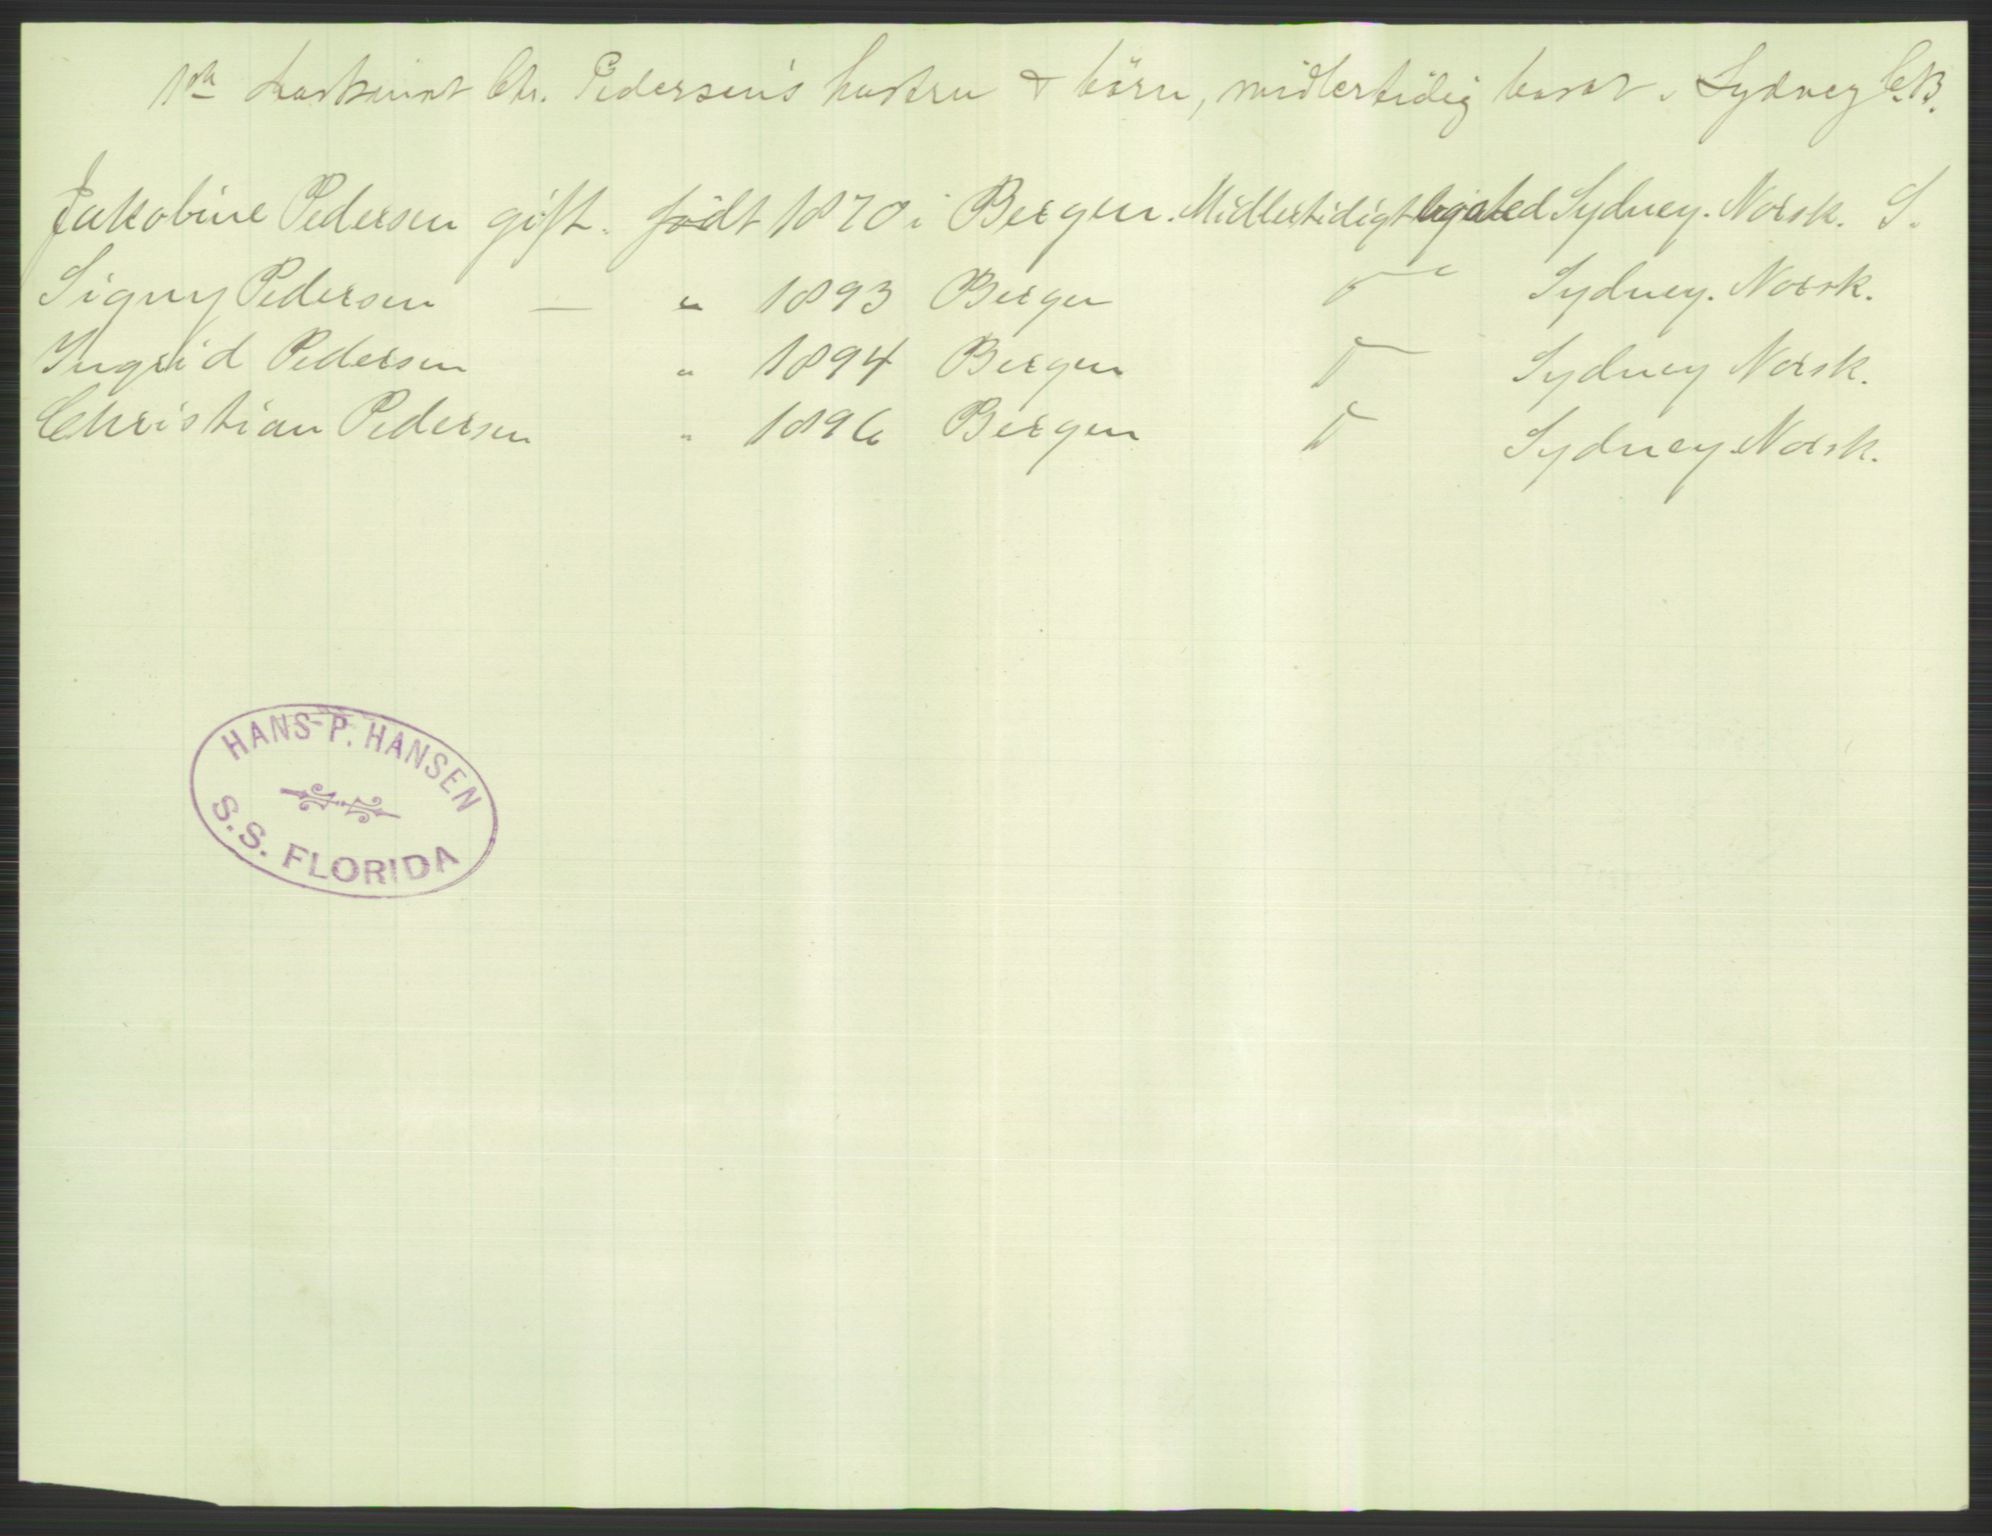 1ste Maskinist Chr. Pedersen's hustru & börn, midlertidig bosat i Sydney C.B.
Jakobine Pedersen gift. födt 1870 i Bergen. Midlertidigt Sydney. Norsk. S.
Signy Pedersen — " 1893 Bergen Sydney. Norsk.
Ingrid Pedersen " 1894 Bergen Sydney Norsk.
Christian Pedersen " 1896 Bergen Sydney. Norsk.
HANS P. HANSEN
S.S. FLORIDA